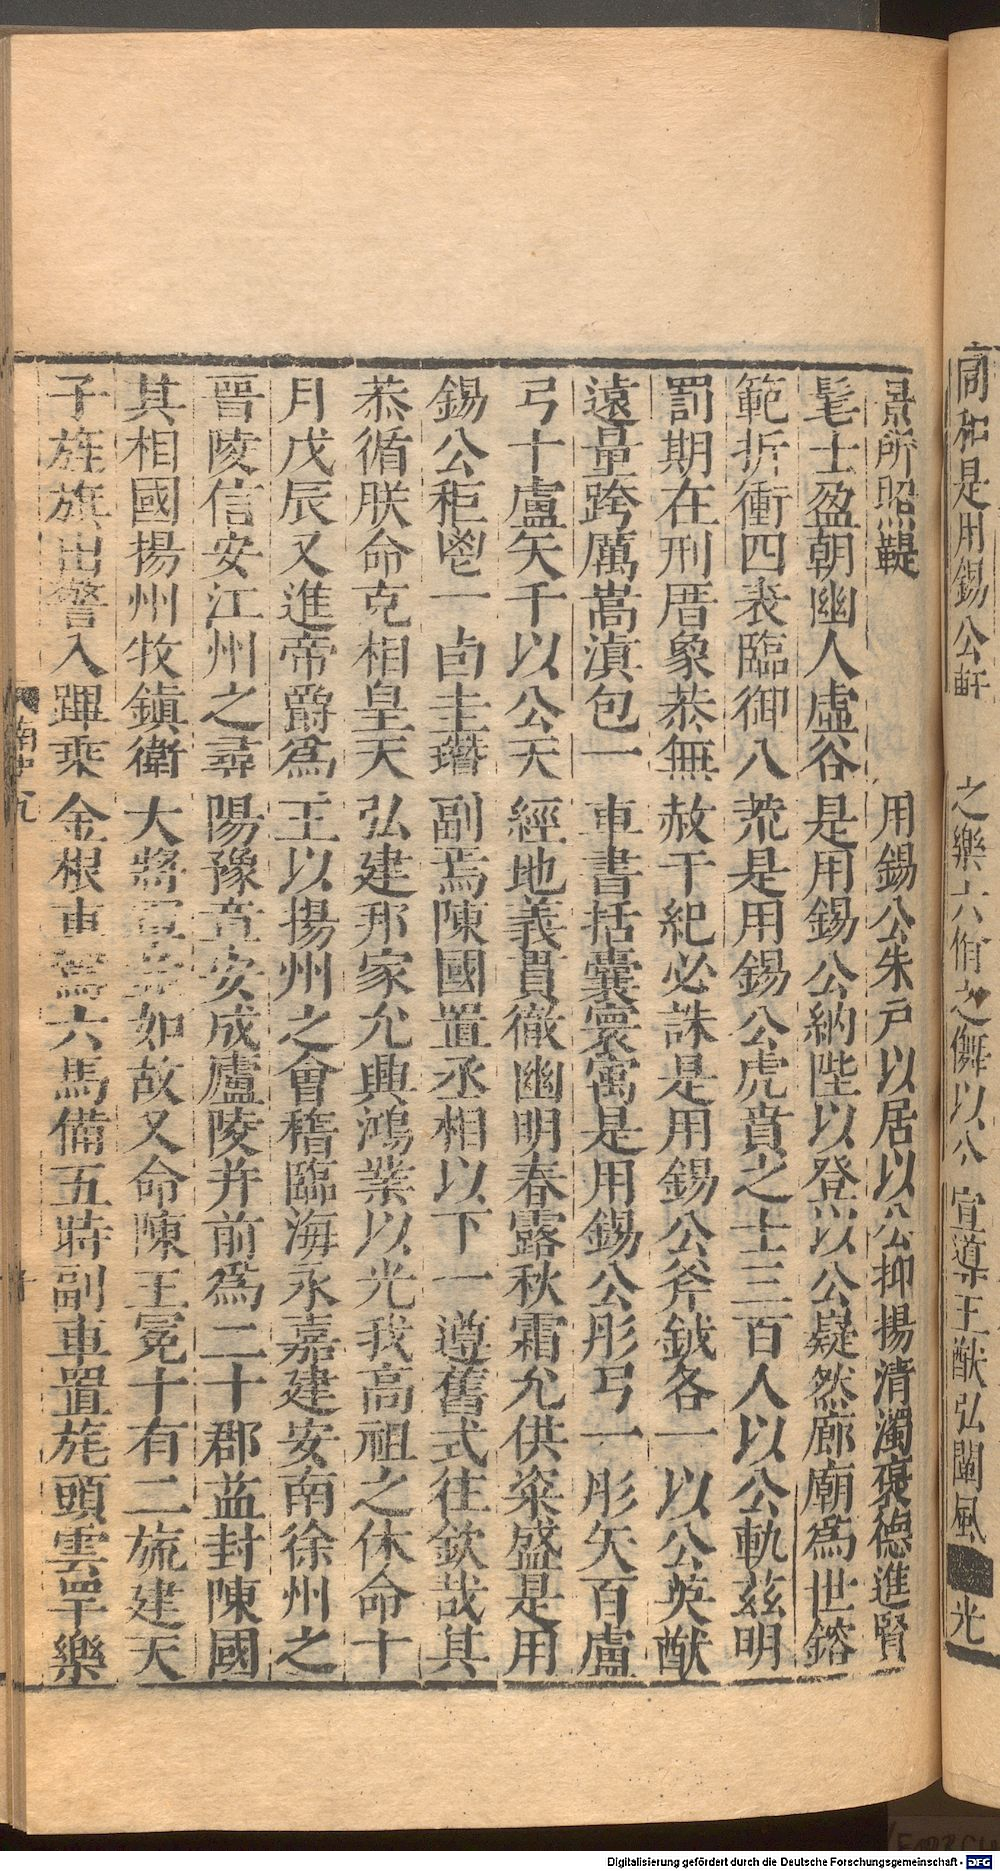 同和是用錫公軒　之樂六佾之儛以公　宣導王猷弘闡風　光
景所照鞮　用錫公朱戸以居以公抑揚清濁褒德進賢
髦士盈朝幽人虛谷是用錫公納陛以登以公嶷然廊廟為世鎔
範折衝四表臨御八荒是用錫公虎賁之士三百人以公軌茲明
罰期在刑厝象恭無赦干紀必誅是用錫公斧鉞各一以公英猷
遠量跨厲嵩溟包一車書括囊寰㝢是用錫公彤弓一彤矢百盧
弓十盧矢千以公天經地義貫徹幽明春露秋霜允供粢盛是用
錫公秬鬯一卣圭瓚副焉陳國置丞相以下一遵舊式往欽哉其
恭循朕命克相皇天弘建邦家允興鴻業以光我高祖之休命十
月戊辰又進帝爵為王以揚州之會稽臨海永嘉建安南徐州之
晉陵信安江州之尋陽豫章安成廬陵并前為二十郡益封陳國
其相國揚州牧鎮衛大將軍並如故又命陳王冕十有二旒建天
子旌旗出警入蹕乘金根車駕六馬備五時副車置旄頭雲罕樂
Digitalisierung gefördert durch die Deutsche Forschungsgemeinschaft - DFG